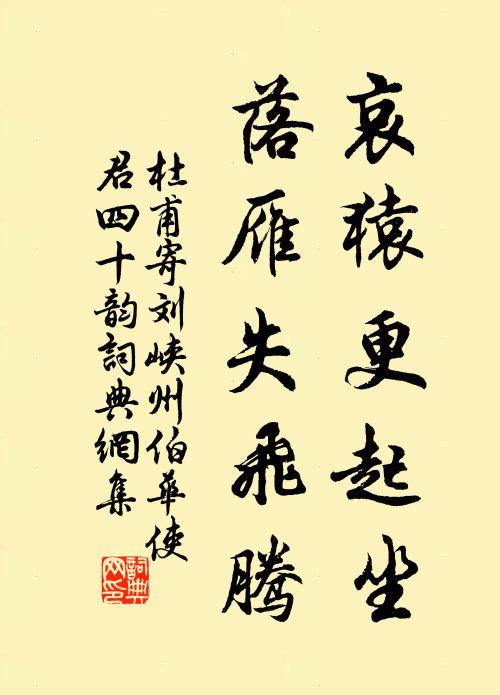 哀猿更起坐
落雁失飛腾
杜甫寄刘峡州伯華使
君四十韵詞典網集
詞典
网印